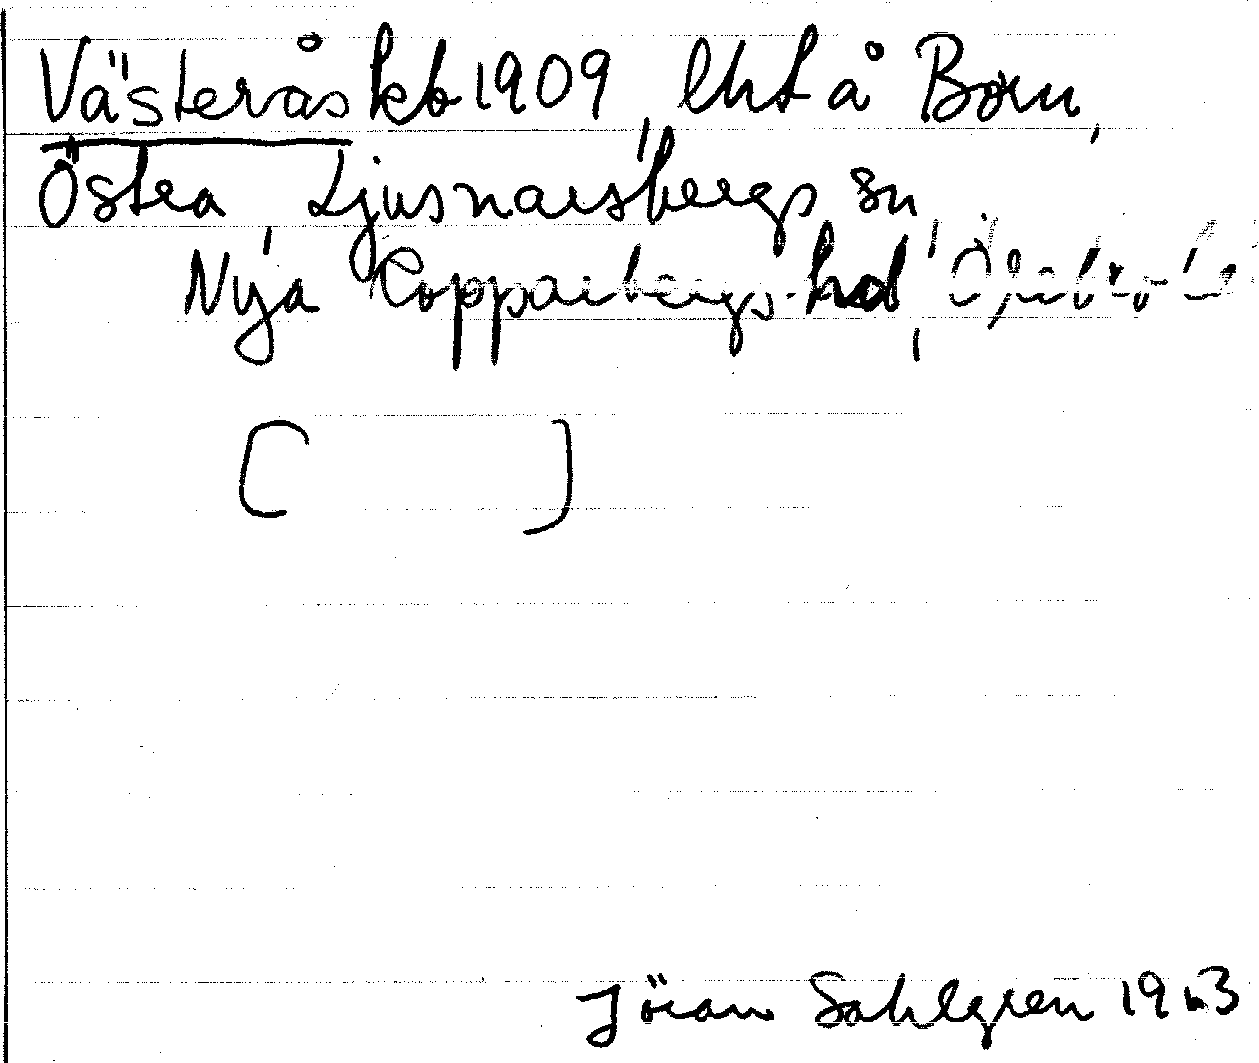 Västerås kb 1909 lht å Born,
Östra, Ljusnarsbergs sn,
Nya Kopparbergs hd, Örebro l
[ ]
Jöran Sahlgren